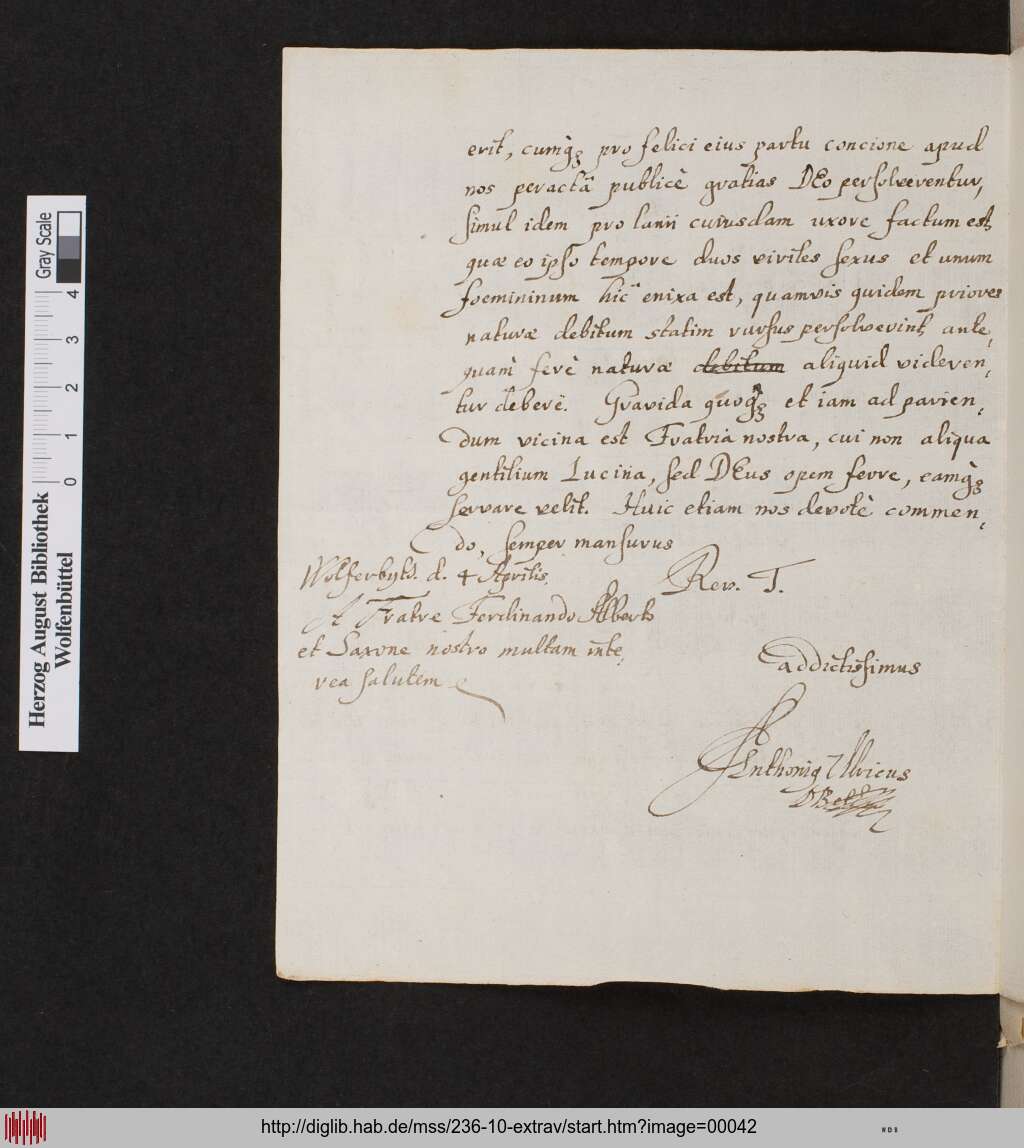 erit, cumq́ꝫ pro felici eius partu concione apud
nos peractâ publicè gratias DEo persolverentur,
simul idem pro lanii cuiusdam uxore factum est,
quæ eo ipso tempore duos viriles sexus et unum
foemininum hîc enixa est, quamvis quidem priores
naturæ debitum statim rursus persolverint, ante,
quam ferè naturæ debitum aliquid videren,
tur debere. Gravida quoqꝫ et iam ad parien,
dum vicina est Fratria nostra, cui non aliqua
gentilium Lucina, sed DEus opem ferre, eamq́ꝫ
servare velit. Huic etiam nos devotè commen,
do, semper mansurus
Wolferbyti. d. 4 Aprilis.
Rev. T.
A Fratre Ferdinando Alberto
et Saxone nostro multam inte,
rea salutem
addictissimus
Anthonig Ulricus
Herzog August Bibliothek
Wolfenbüttel
0 1 2 3 4
Gray Scale
http://diglib.hab.de/mss/236-10-extrav/start.htm?image=00042
WDB